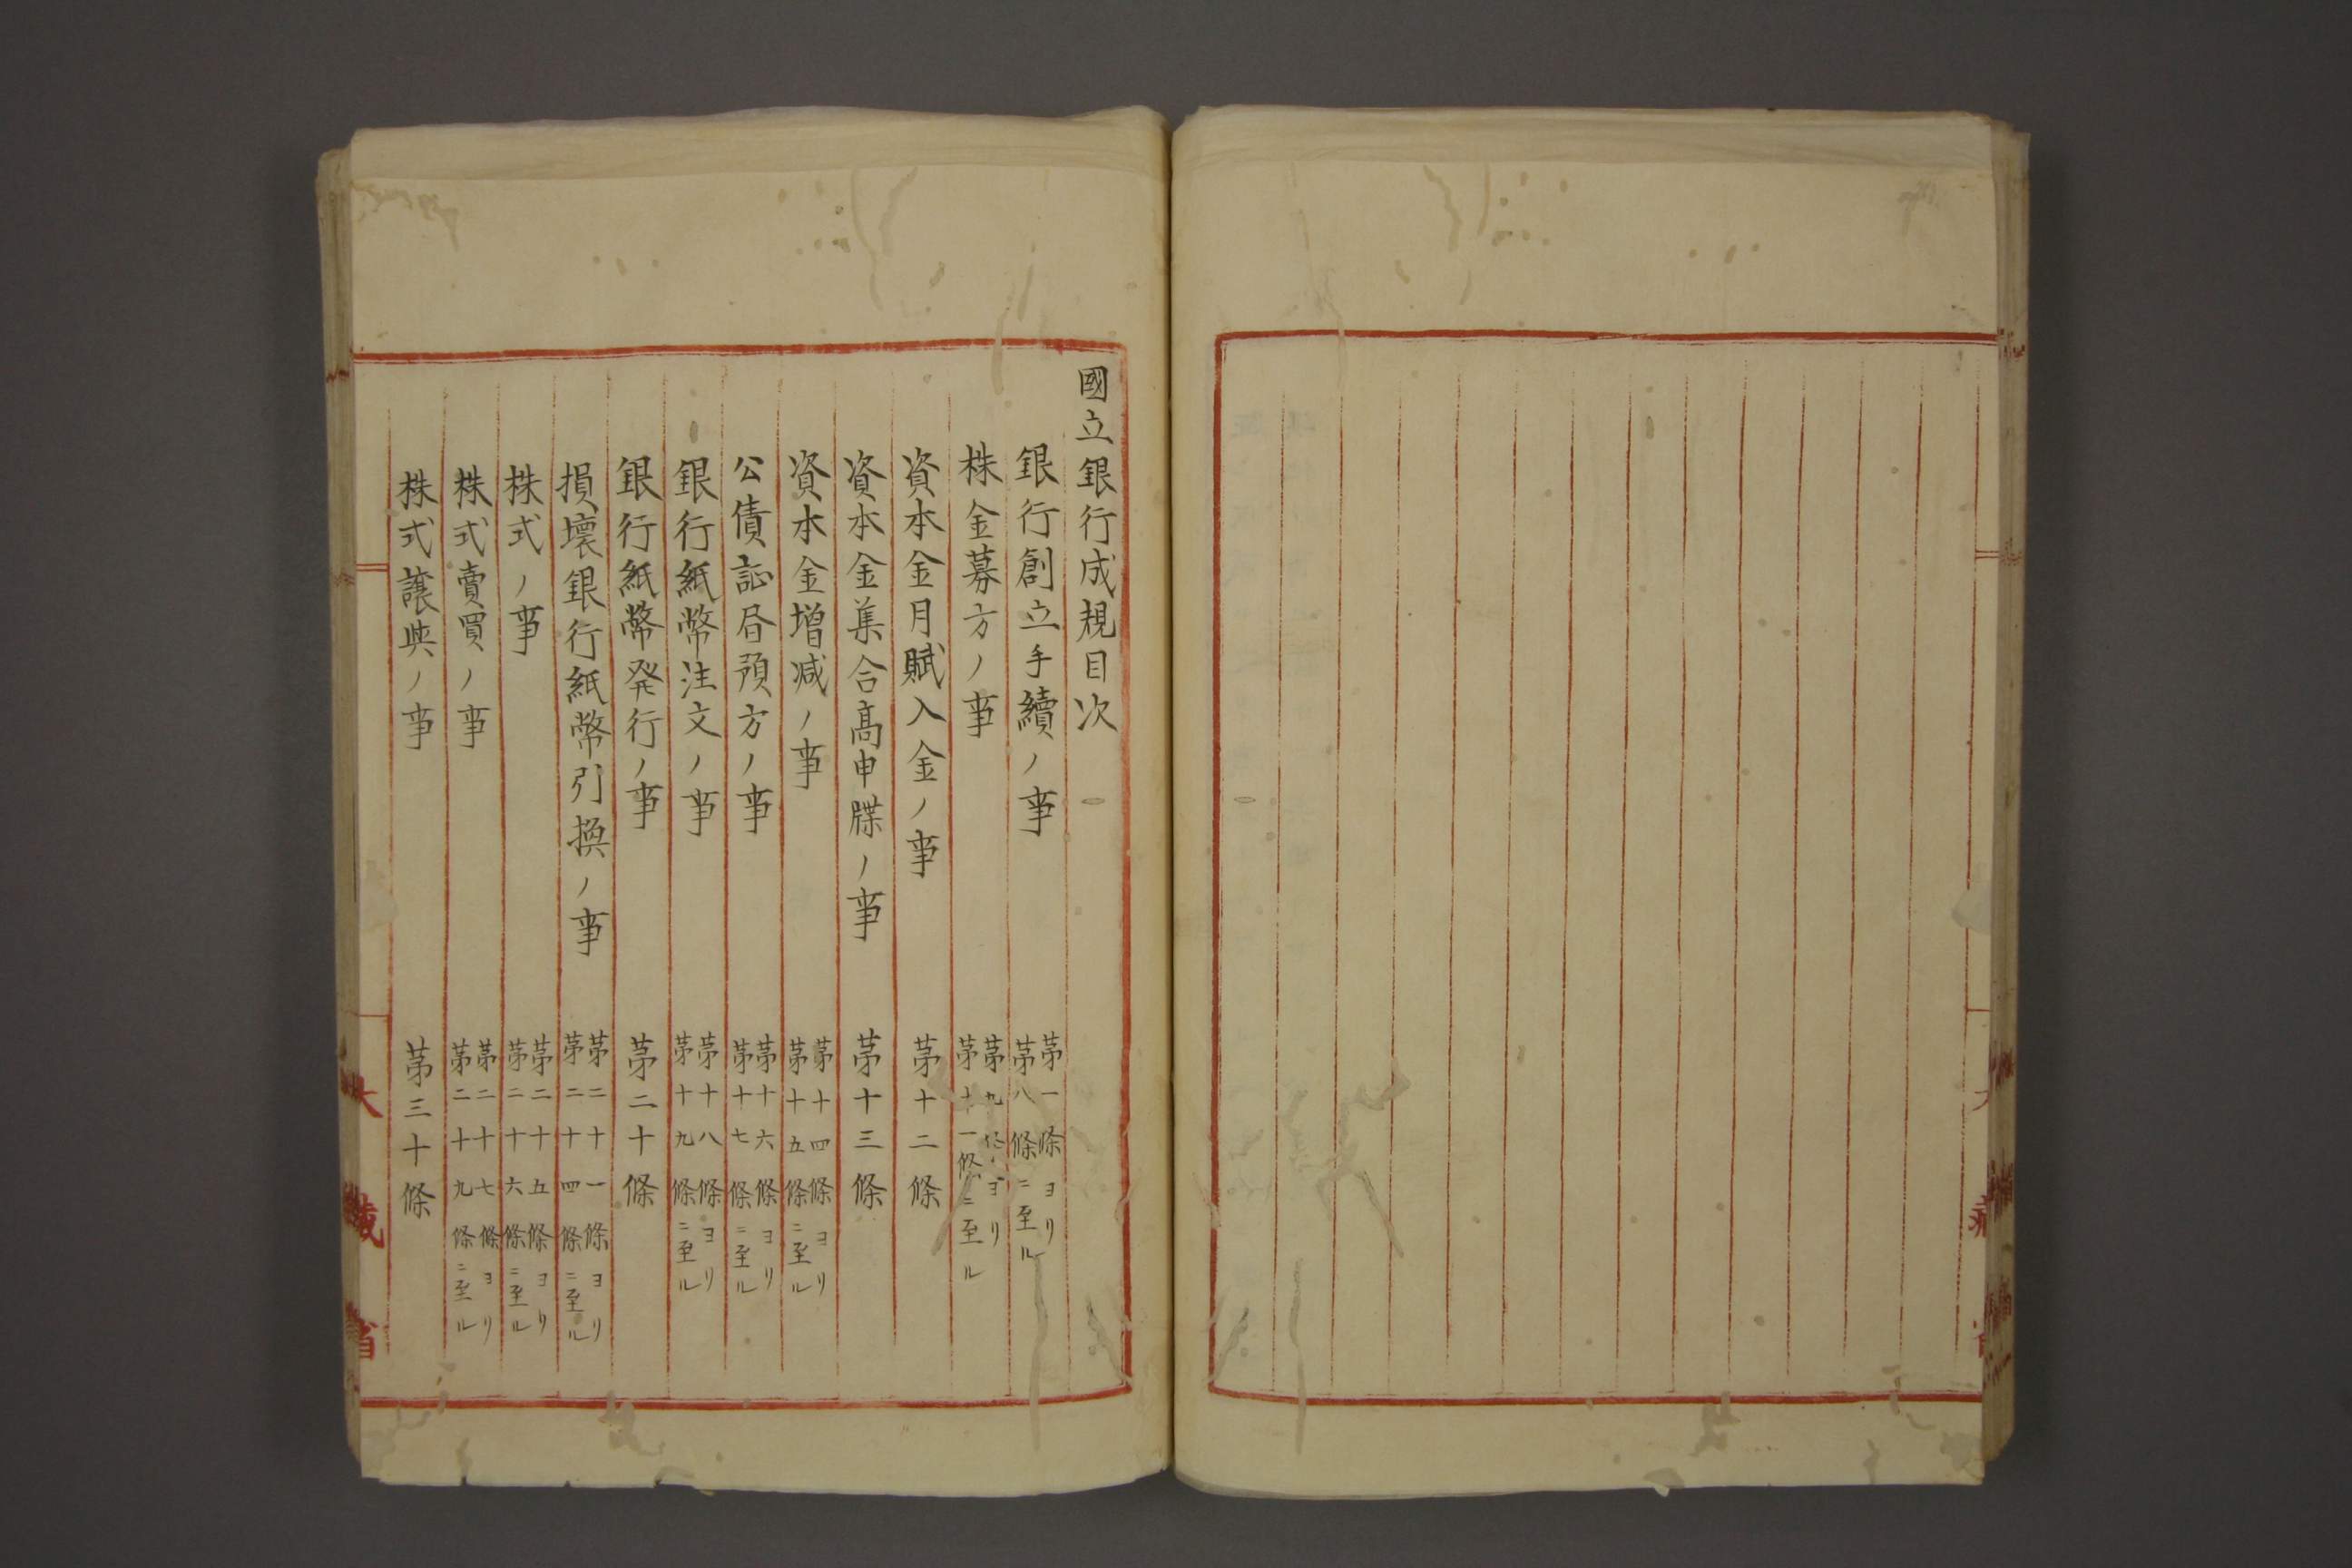 國立銀行成規目次
銀行創立手續ノ事 第一條ヨリ第八條ニ至ル
株金募方ノ事 第九條ヨリ第十一條ニ至ル
資本金月賦入金ノ事 第十二條
資本金集合高申牒ノ事 第十三條
資本金增減ノ事 第十四條ヨリ第十五條ニ至ル
公債証書預方ノ事 第十六條ヨリ第十七條ニ至ル
銀行紙幣注文ノ事 第十八條ヨリ第十九條ニ至ル
銀行紙幣発行ノ事 第二十條
損壞銀行紙幣引換ノ事 第二十一條ヨリ第二十四條ニ至ル
株式ノ事 第二十五條ヨリ第二十六條ニ至ル
株式賣買ノ事 第二十七條ヨリ第二十九條ニ至ル
株式讓與ノ事 第三十條
大藏省